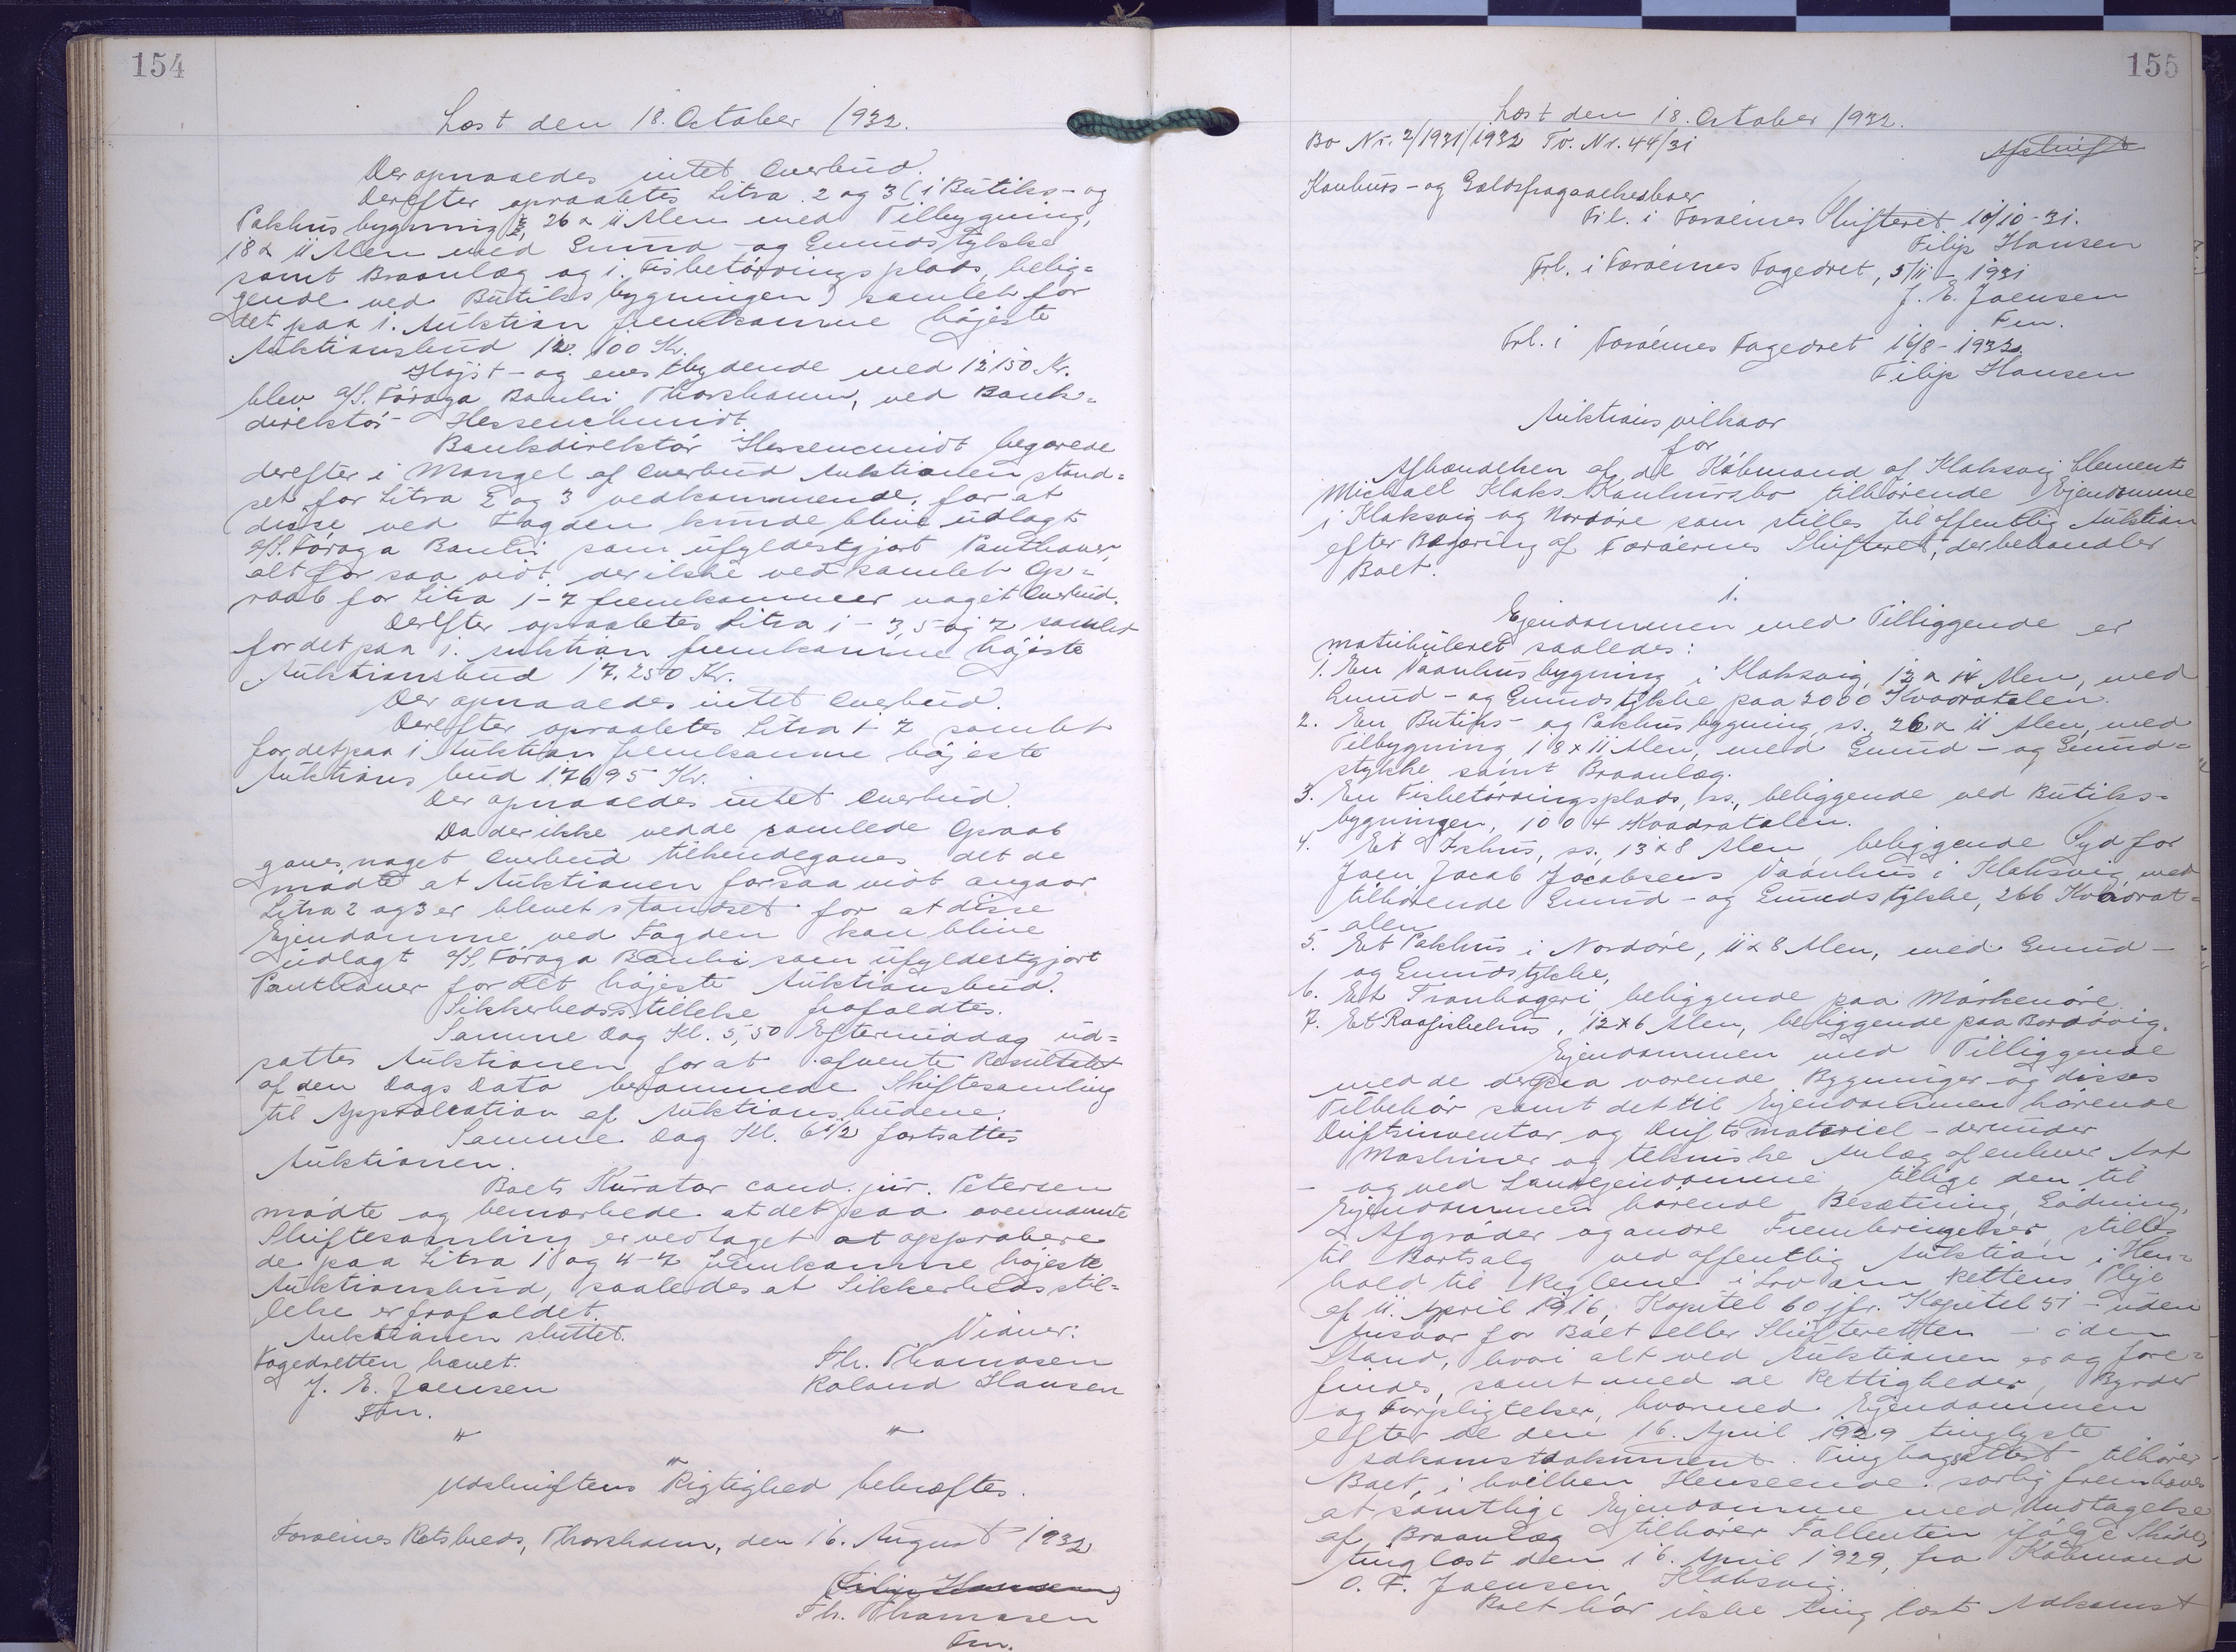 154
Læst den 18. October 1932.
Der opnaaedes intet Overbud.
Derefter opraabtes Litra 2 og 3 (1 Butiks- og
Pakhusbygning, 26 x 11 Alen med Tilbygning,
18 x 11 Alen med Grund- og Grundstykke
samt Braanlæg og 1 Fisketørringsplads, belig=
gende ved Butiksbygningen) samlet for
det paa 1. Auktion fremkomne højeste
Auktionsbud 12.100 Kr.
Højst- og enestbydende med 12150 Kr.
blev A/S. Föroya Banki Thorshavn, ved Bank=
direktör Hessenchmidt.
Bankdirektör Hessencmidt begærede
derefter i Mangel af Overbud Auktionen stand=
set for Litra 2 og 3 vedkommende, for at
disse ved Fogden kunde blive udlagt
A/S. Föroya Banki som ufyldestgjort Panthaver,
alt for saa vidt der ikke ved samlet Op=
raab for Litra 1-7 fremkommer noget Overbud.
Derefter opraabtes Litra 1-3, 5 og 7 samlet
for det paa 1. Auktion fremkomne højeste
Auktionsbud 17.250 Kr.
Der opnaaedes intet Overbud.
Derefter opraabtes Litra 1-7 samlet
for det paa 1 Auktion fremkomne højeste
Auktions bud 17695 Kr.
Der opnaaedes intet Overbud.
Da der ikke ved de samlede Opraab
gaves noget Overbud tilkendegaves det de
mødte at Auktionen forsaavidt angaar
Litra 2 og 3 er blevet standset for at disse
Ejendomme ved Fogden kan blive
udlagt A/S. Föroya Banki som ufyldestgjort
Panthaver for det højeste Auktionsbud.
Sikkerhedsstillelse frafaldtes.
Samme Dag Kl. 5,50 Eftermiddag ud=
sattes Auktionen for at afvente Resultatet
af den Dags Dato berammede Skiftesamling
til Approbation af Auktionsbudene.
Samme Dag Kl. 6 1/2 fortsattes
Auktionen.
Boets Kurator cand. jur. Petersen
mødte og bemærkede at det paa ovennævnte
Skiftesamling er vedtaget at approbere
de paa Litra 1 og 4-7 fremkomne højeste
Auktionsbud, saaledes at Sikkerhedsstil=
lelse er frafaldet.
Auktionen sluttet.
Vidner:
Fogedretten hævet.
Th. Thomasen
J. E. Joensen
Roland Hansen
Fm.
Udskriftens Rigtighed bekræftes.
Færøernes Retskreds, Thorshavn, den 16. August 1932
Filip Hansen
Th. Thomasen
Fm.
155
Læst den 18. October 1932.
Bo Nr. 2/1931/1932 Fo. Nr. 44/31
Afskrift
Konkurs- og Gældsfragaaelsesboer
Frl. i Færøernes Skifteret 10/10-31.
Filip Hansen
Frl. i Færøernes Fogedret, 5/11-1931
J. E. Joensen
Fm.
Frl. i Færøernes Fogedret 16/8-1932.
Filip Hansen
Auktionsvilkaar
for
Afhændelsen af de Købmand af Klaksvig Clement
Michael Klaks Konkursbo tilhørende Ejendomme
i Klaksvig og Nordøre som stilles til offentlig Auktion
efter Begæring af Færøernes Skifteret, der behandler
Boet.
1.
Ejendommen med Tilliggende er
matrikuleret saaledes:
1. En Vaanhusbygning i Klaksvig, 12 x 14 Alen, med
Grund- og Grundstykke paa 2000 Kvadratalen.
2. En Butiks- og Pakhusbygning, ss. 26 x 11 Alen, med
Tilbygning 18 x 11 Alen, med Grund- og Grund=
stykke samt Braanlæg.
3. En Fisketørringsplads, ss., beliggende ved Butiks-
bygningen, 1004 Kvadratalen.
4. Et Ishus, ss, 13 x 8 Alen beliggende Syd for
Joen Jacob Jacobsens Vaanhus i Klaksvig, med
tilhørende Grund- og Grundstykke, 266 Kvadrat=
alen
5. Et Pakhus i Nordøre, 11 x 8 Alen, med Grund-
og Grundstykke,
6. Et Tranbageri beliggende paa Mørkenøre
7. Et Raafiskehus, 12 x 6 Alen, beliggende paa Bordövig.
Ejendommen med Tilliggende
med de derpaa værende Bygninger og disses
Tilbehør samt det til Ejendommen hørende
Driftsinventar og Driftsmateriel - derunder
Maskiner og tekniske Anlæg af enhver Art
- og ved Landejendomme tillige den til
Ejendommen hørende Besætning, Gødning,
Afgrøder og andre Frembringelser, stilles
til Bortsalg ved offentlig Auktion i Hen=
hold til Reglerne i Lov om Rettens Pleje
af 11. April 1916, Kapitel 60 jfr. Kapitel 51 - uden
Ansvar for Boet eller Skifteretten - i den
Stand, hvori alt ved Auktionen er og fore=
findes, samt med de Rettigheder, Byrder
og Forpligtelser, hvormed Ejendommen
efter de den 16. April 1929 tinglyste
adkomstdokument. Tingbogsattest tilhører
Boet, i hvilken Henseende særlig fremhæves
at samtlige Ejendomme med Undtagelse
af Braanlæg tilhører Fallenten ifølge Skøde,
tinglæst den 16. April 1929, fra Købmand
O. F. Joensen, Klaksvig.
Boet har ikke tinglæst Adkomst